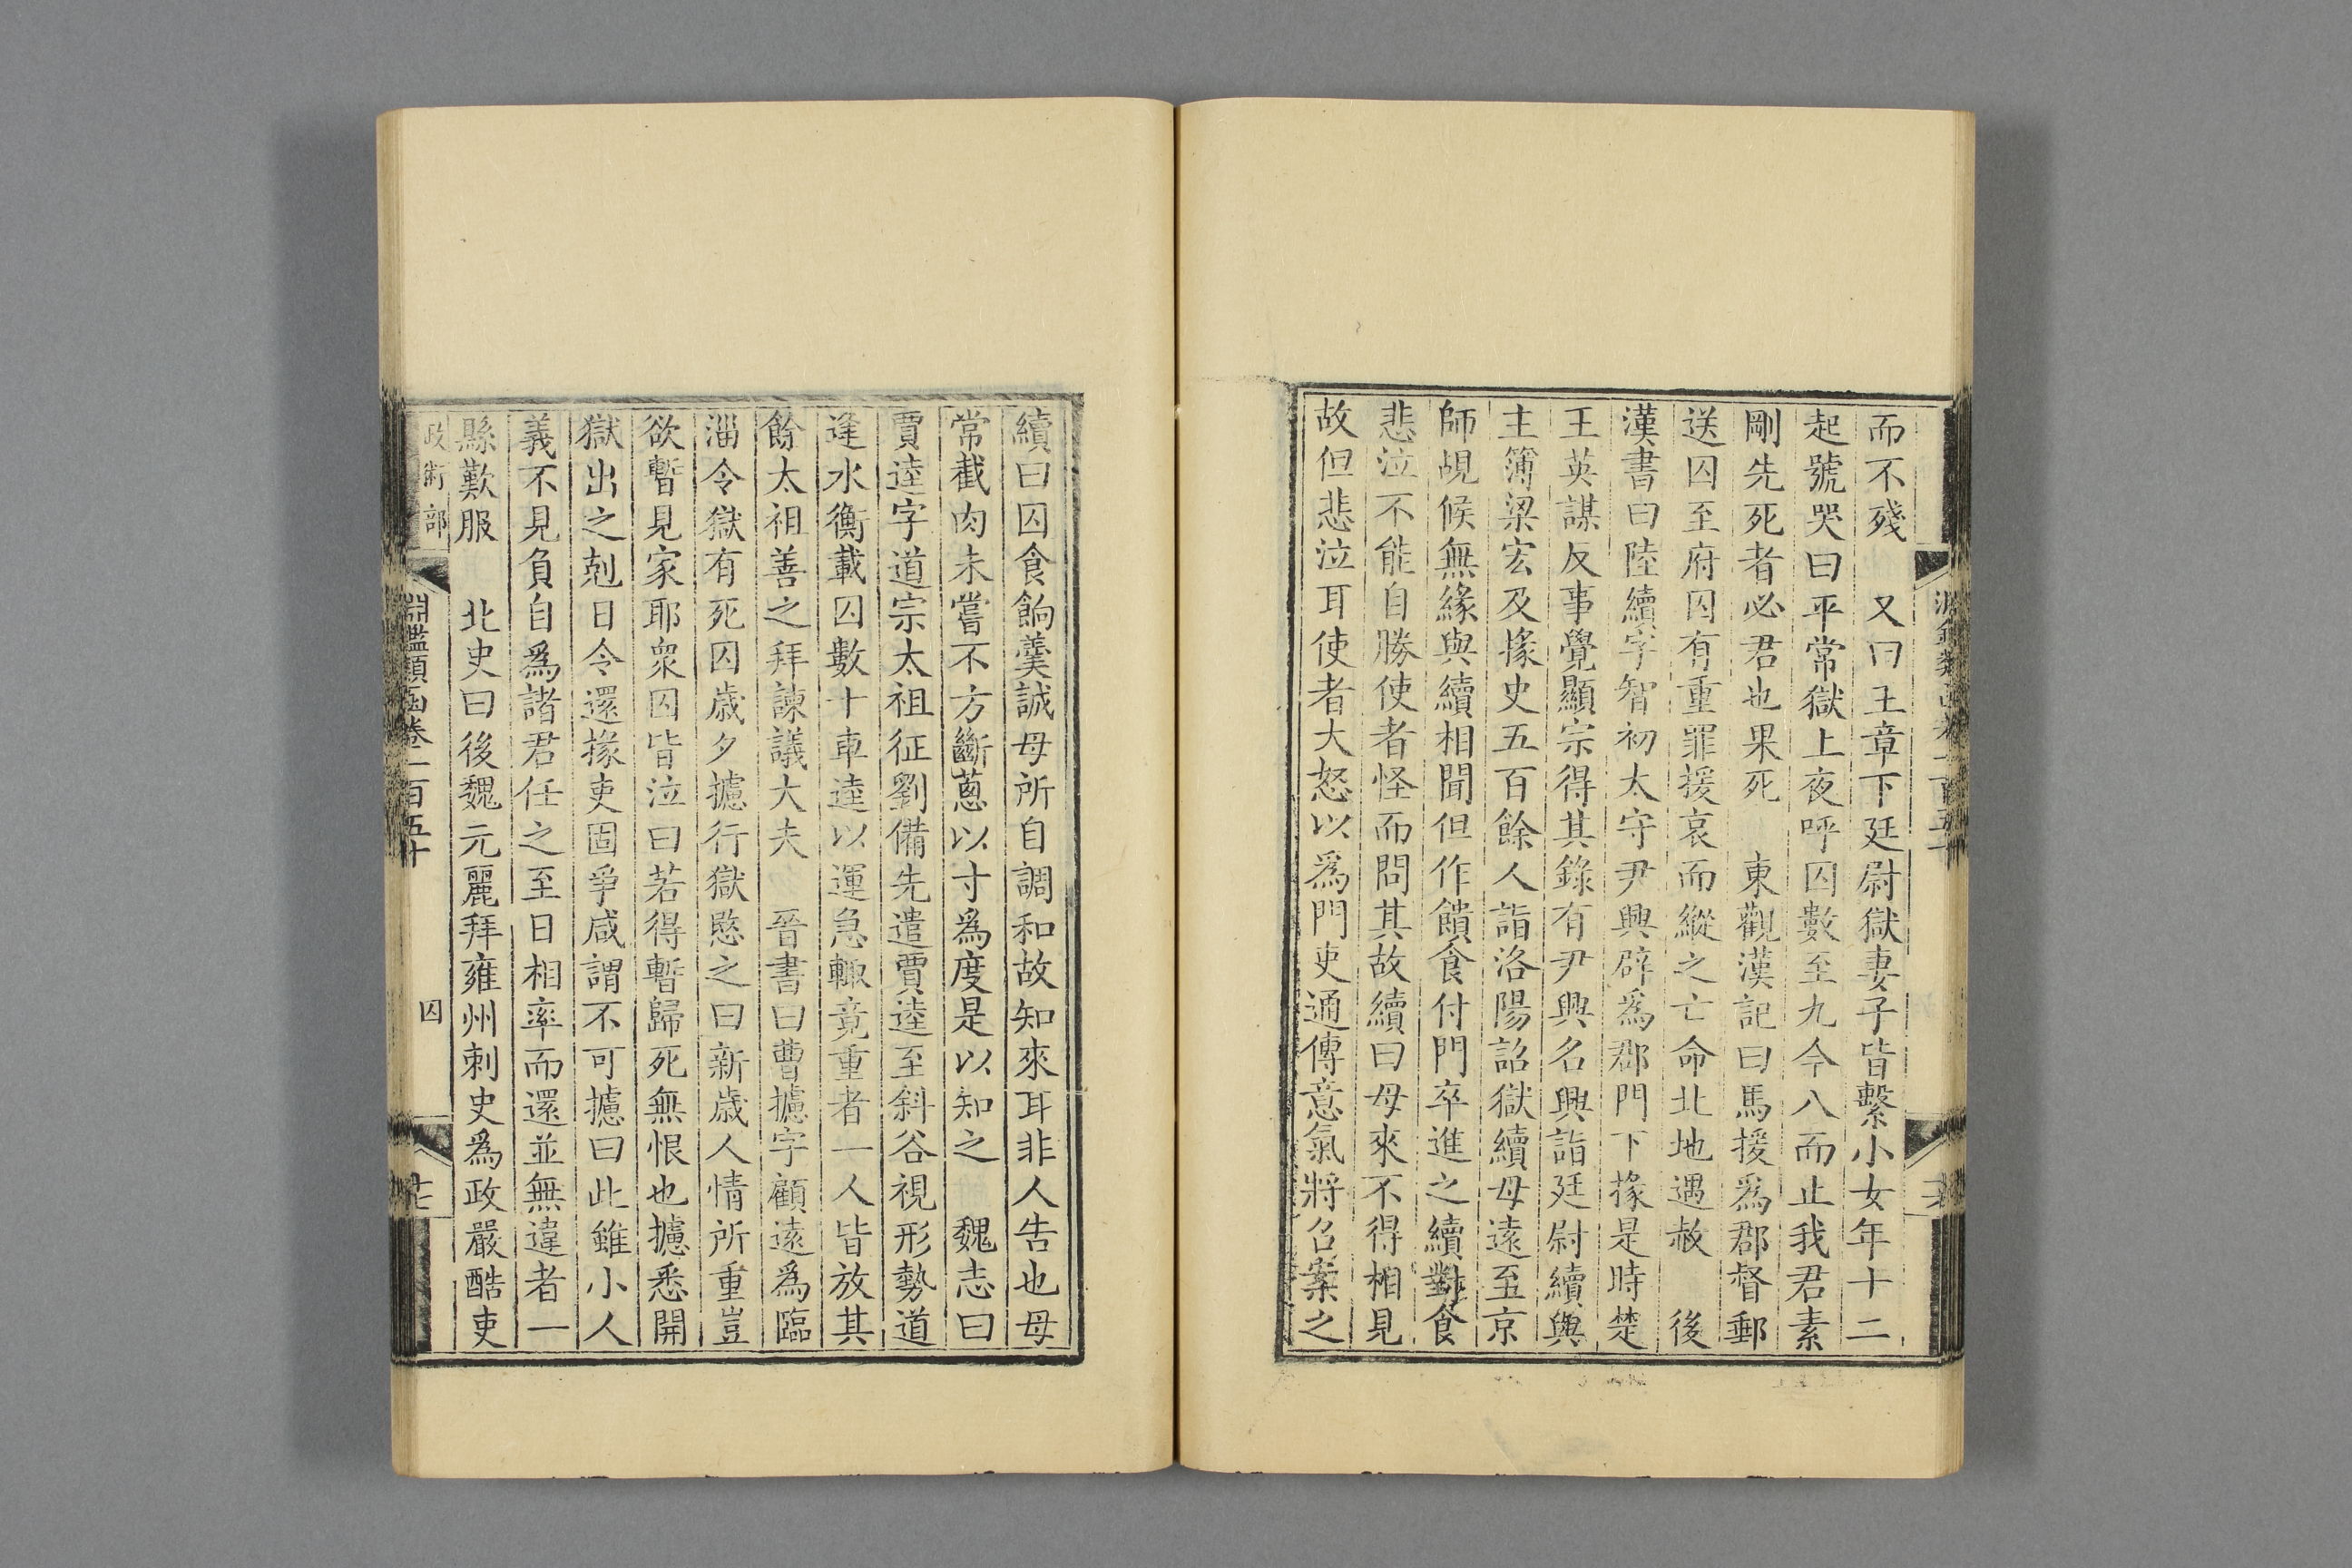 而不殘　又曰王章下廷尉獄妻子皆繫小女年十二
起號哭曰平常獄上夜呼囚數至九今八而止我君素
剛先死者必君也果死　東觀漢記曰馬援爲郡督郵
送囚至府囚有重罪援哀而縱之亡命北地遇赦　後
漢書曰陸續字智初太守尹興辟爲郡門下掾是時楚
王英謀反事覺顯宗得其錄有尹興名興詣廷尉續與
主簿梁宏及掾史五百餘人詣洛陽詔獄續母遠至京
師覘候無緣與續相聞但作饋食付門卒進之續對食
悲泣不能自勝使者怪而問其故續曰母來不得相見
故但悲泣耳使者大怒以爲門吏通傳意氣將召案之
續曰囚食餉羹誠母所自調和故知來耳非人告也母
常截肉未嘗不方斷蔥以寸爲度是以知之　魏志曰
賈逵字道宗太祖征劉備先遣賈逵至斜谷視形勢道
逢水衡載囚數十車逵以運急輒竟重者一人皆放其
餘太祖善之拜諫議大夫　晉書曰曹攄字顏遠爲臨
淄令獄有死囚歲夕攄行獄愍之曰新歲人情所重豈
欲暫見家耶衆囚皆泣曰若得暫歸死無恨也攄悉開
獄出之剋日令還掾吏固爭咸謂不可攄曰此雖小人
義不見負自爲諸君任之至日相率而還並無違者一
縣歎服　北史曰後魏元麗拜雍州刺史爲政嚴酷吏
政術部
淵鑑類函卷一百五十
囚